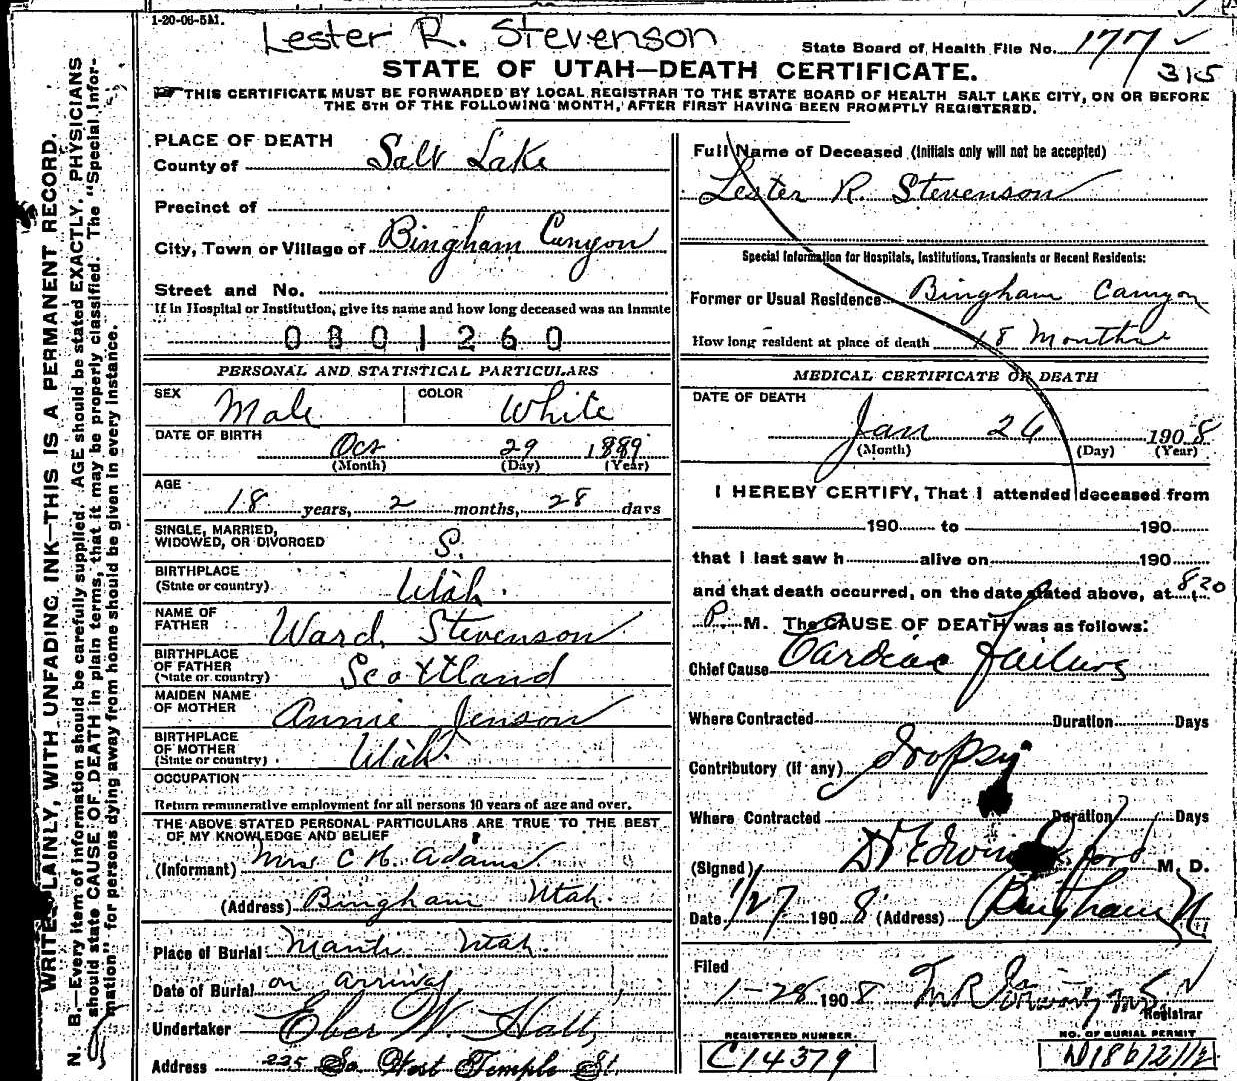 1-20-06-5M.
Lester R. Stevenson
State Board of Health File No. 177
STATE OF UTAH—DEATH CERTIFICATE.
315
THIS CERTIFICATE MUST BE FORWARDED BY LOCAL REGISTRAR TO THE STATE BOARD OF HEALTH SALT LAKE CITY, ON OR BEFORE
THE 5TH OF THE FOLLOWING MONTH, AFTER FIRST HAVING BEEN PROMPTLY REGISTERED.
WRITE PLAINLY, WITH UNFADING INK—THIS IS A PERMANENT RECORD.
N. B.—Every item of information should be carefully supplied. AGE should be stated EXACTLY. PHYSICIANS
should state CAUSE OF DEATH in plain terms, that it may be properly classified. The "Special Infor-
mation" for persons dying away from home should be given in every instance.
PLACE OF DEATH
County of Salt Lake
Precinct of
City, Town or Village of Bingham Canyon
Street and No.
If in Hospital or Institution, give its name and how long deceased was an inmate
0801260
PERSONAL AND STATISTICAL PARTICULARS
SEX Male COLOR White
DATE OF BIRTH Oct 29 1889
(Month) (Day) (Year)
AGE
18 years, 2 months, 28 days
SINGLE, MARRIED,
WIDOWED, OR DIVORCED S.
BIRTHPLACE
(State or country) Utah.
NAME OF
FATHER Ward Stevenson
BIRTHPLACE
OF FATHER
(State or country) Scottland
MAIDEN NAME
OF MOTHER Annie Jenson
BIRTHPLACE
OF MOTHER
(State or country) Utah.
OCCUPATION
Return remunerative employment for all persons 10 years of age and over.
THE ABOVE STATED PERSONAL PARTICULARS ARE TRUE TO THE BEST
OF MY KNOWLEDGE AND BELIEF
(Informant) Mrs C H. Adams
(Address) Bingham Utah.
Place of Burial Manti Utah.
Date of Burial on arrival
Undertaker Eber W. Hall,
Address 225 So West Temple St.
Full Name of Deceased (Initials only will not be accepted)
Lester R. Stevenson
Special Information for Hospitals, Institutions, Transients or Recent Residents:
Former or Usual Residence Bingham Canyon
How long resident at place of death 18 Months
MEDICAL CERTIFICATE OF DEATH
DATE OF DEATH
Jan 26 1908
(Month) (Day) (Year)
I HEREBY CERTIFY, That I attended deceased from
190 to 190
that I last saw h alive on 190
and that death occurred, on the date stated above, at 8.20
P. M. The CAUSE OF DEATH was as follows:
Chief Cause Cardiac Failure
Where Contracted Duration Days
Contributory (if any) dropsy
Where Contracted Duration Days
(Signed) M. D.
Date 1/27 1908 (Address) Bingham
Filed
1-28 1908
Registrar
REGISTERED NUMBER. NO. OF BURIAL PERMIT
C14379